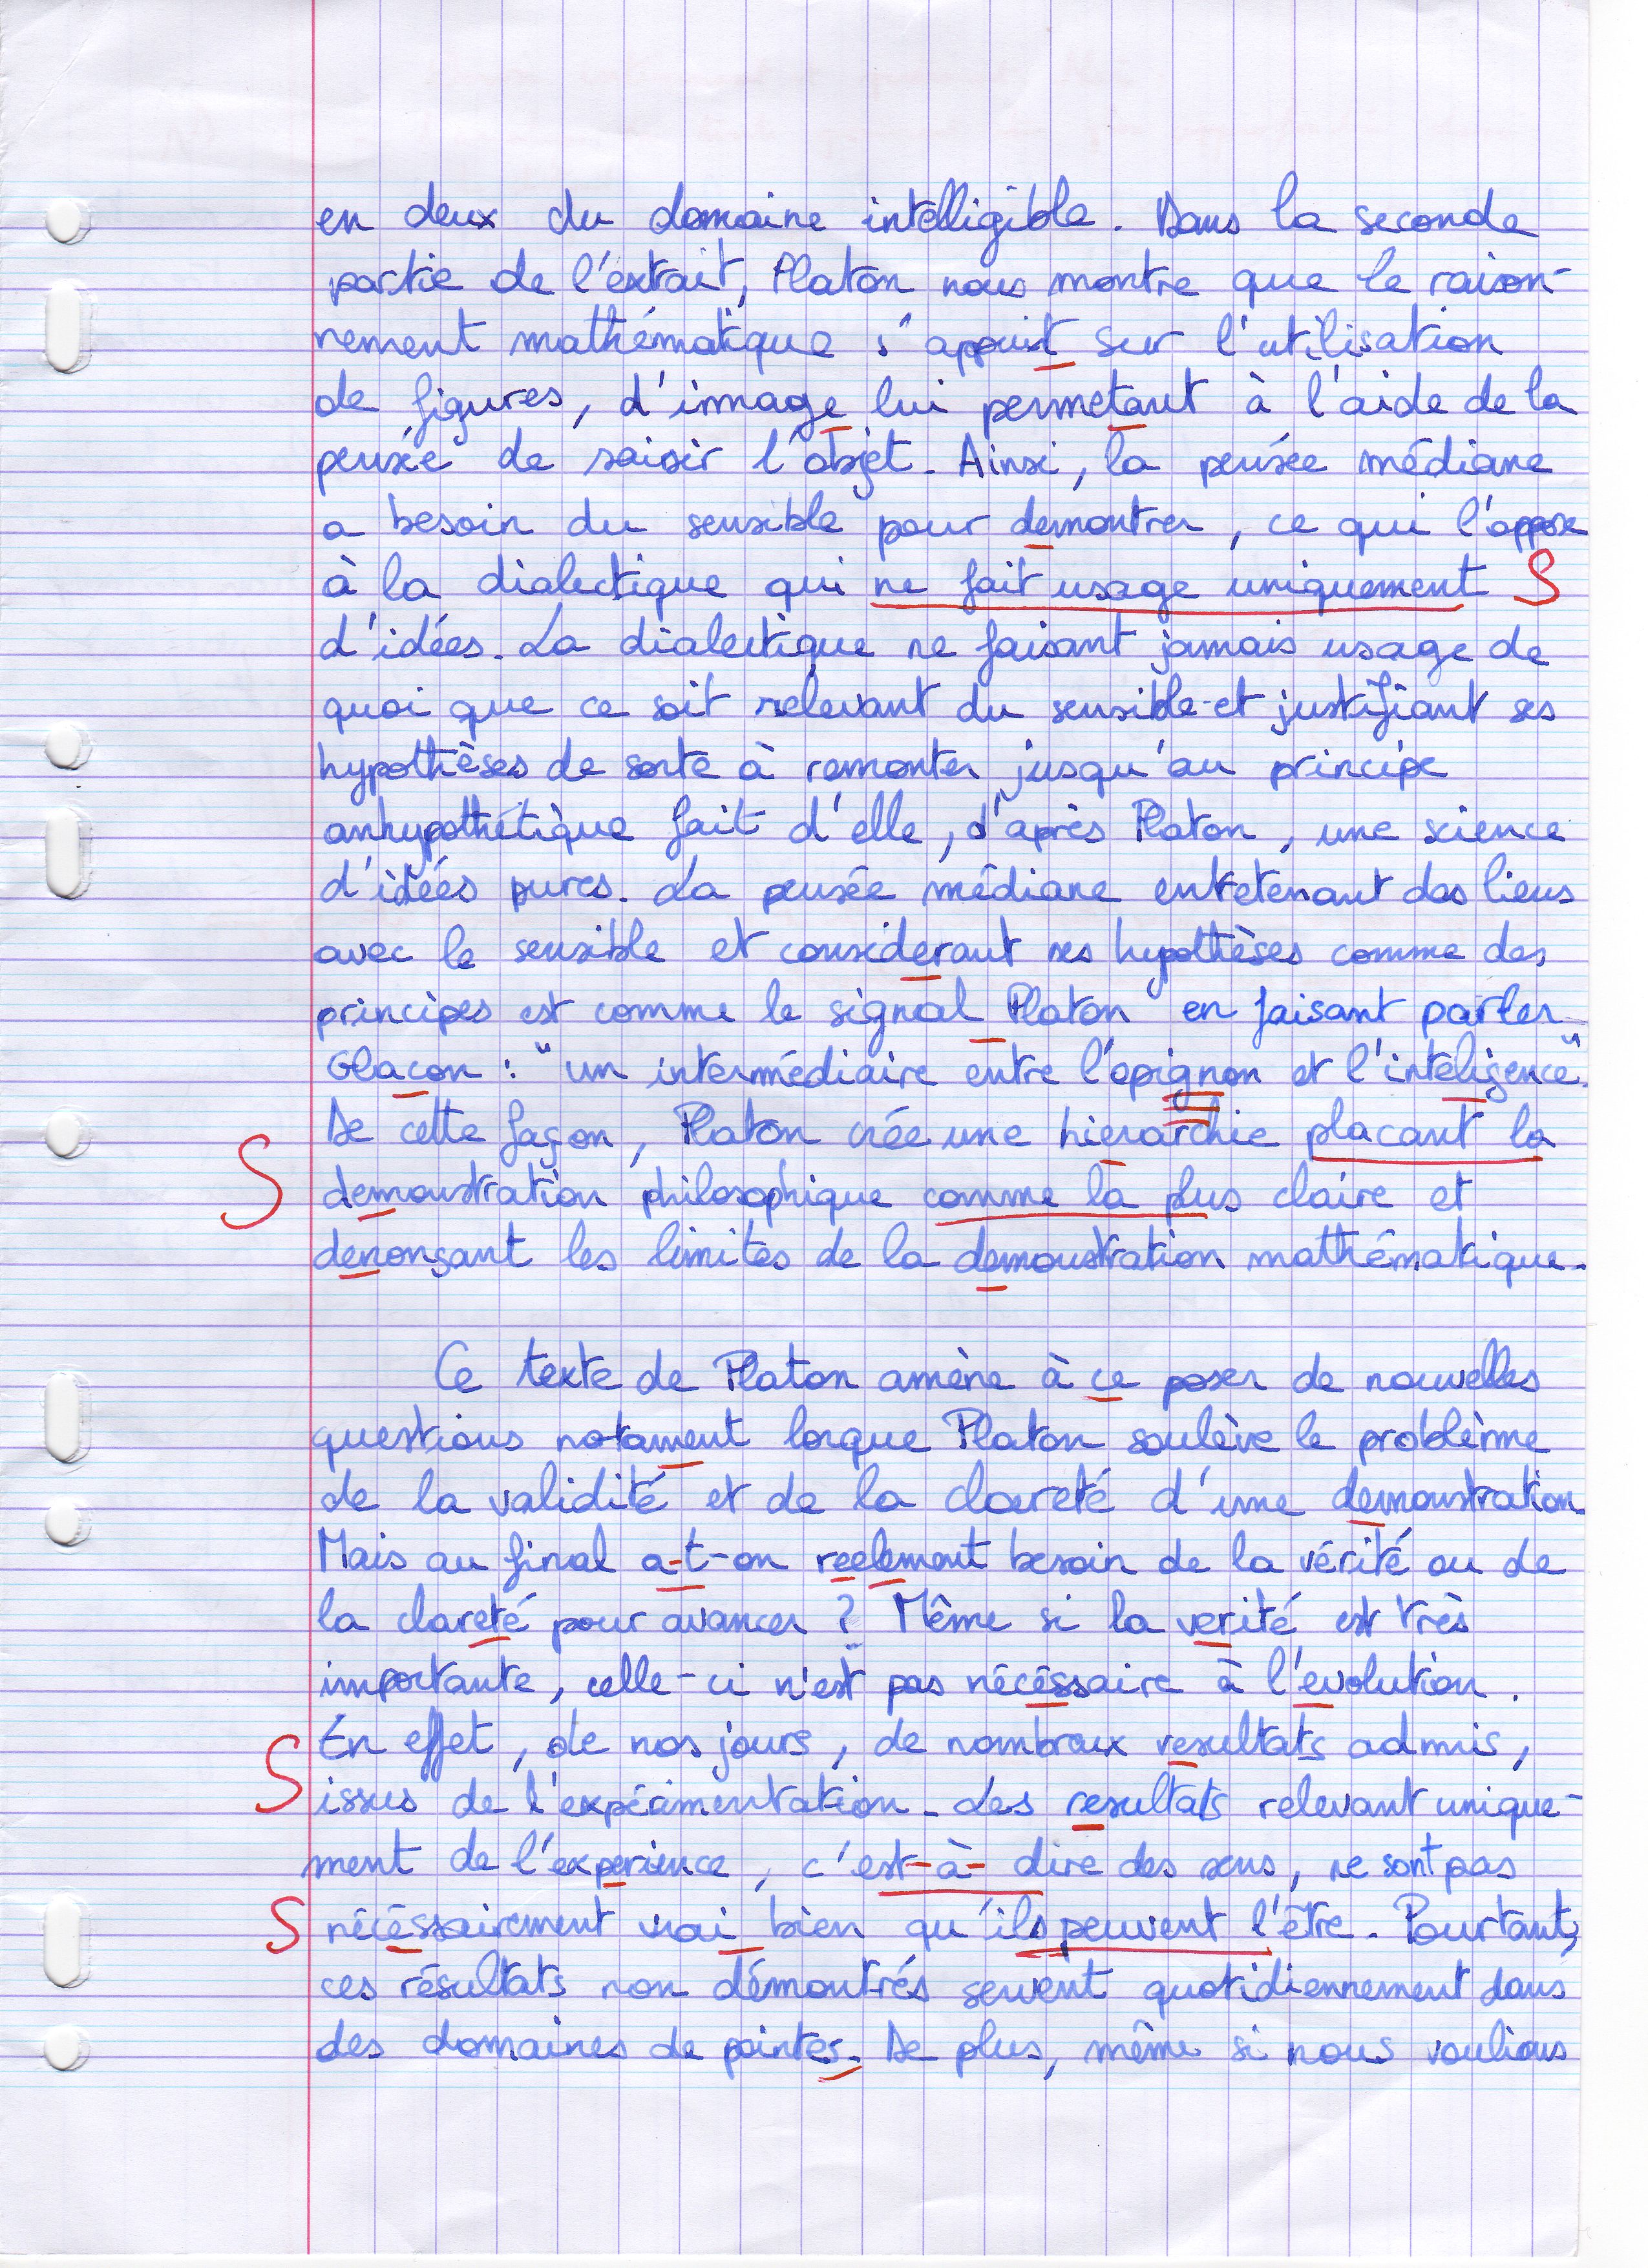 en deux du domaine intelligible. Dans la seconde
partie de l'extrait, Platon nous montre que le raison-
nement mathématique s'appuit sur l'utilisation
de figures, d'image lui permetant à l'aide de la
pensée de saisir l'objet. Ainsi, la pensée médiane
a besoin du sensible pour demontrer, ce qui l'oppose
à la dialectique qui ne fait usage uniquement S
d'idées. La dialectique ne faisant jamais usage de
quoi que ce soit relevant du sensible et justifiant ses
hypothèses de sorte à remonter jusqu'au principe
anhypothétique fait d'elle, d'après Platon, une science
d'idées pures. La pensée médiane entretenant des liens
avec le sensible et considerant ses hypothèses comme des
principes est comme le signal Platon en faisant parler
Glacon : "un intermédiaire entre l'opignon et l'inteligence".
De cette façon, Platon crée une hierarchie placant la
S demonstration philosophique comme la plus claire et
denonçant les limites de la demonstration mathématique.
Ce texte de Platon amène à ce poser de nouvelles
questions notament lorque Platon soulève le problème
de la validité et de la clareté d'une demonstration.
Mais au final a-t-on reelement besoin de la vérité ou de
la clareté pour avancer ? Même si la verité est très
importante, celle-ci n'est pas nécéssaire à l'evolution.
S En effet, de nos jours, de nombreux resultats admis,
issus de l'expérimentation. Les resultats relevant unique-
ment de l'experience, c'est-à-dire des sens, ne sont pas
S nécéssairement vrai bien qu'ils peuvent l'être. Pourtant,
ces résultats non démontrés servent quotidiennement dans
des domaines de pointes. De plus, même si nous voulions